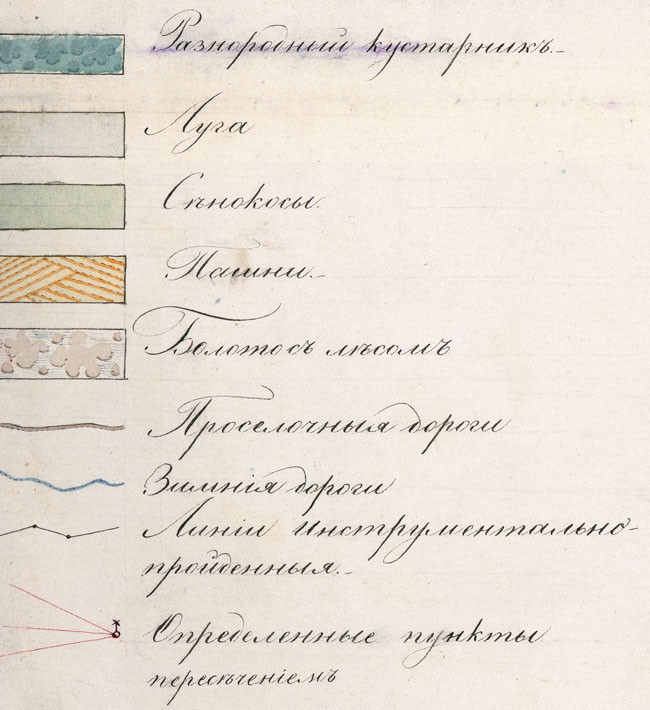 Разнородный кустарникъ.
Луга
Сѣнокосы.
Пашни.
Болото съ лѣсомъ
Проселочныя дороги
Зимнія дороги
Линіи инструментально-
пройденныя.
Определенные пункты
пересѣченіемъ